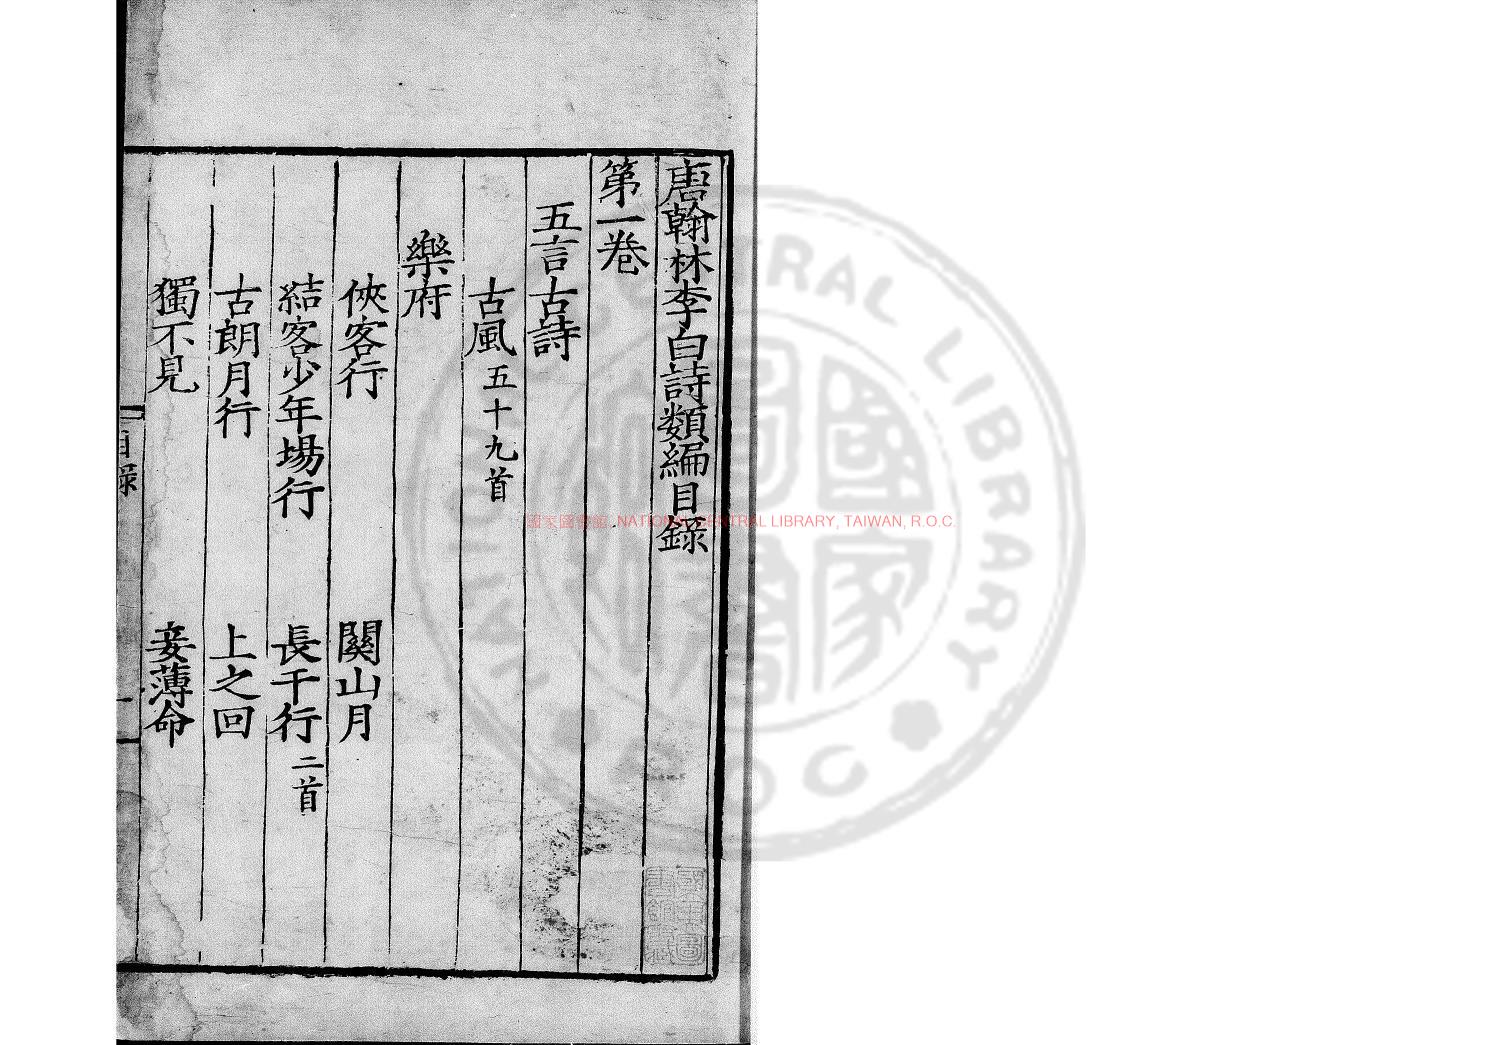 唐翰林李白詩類編目錄
第一卷
五言古詩
古風五十九首
樂府
俠客行 關山月
結客少年場行 長干行二首
古朗月行 上之回
獨不見 妾薄命
目錄
一
國家圖書館 NATIONAL CENTRAL LIBRARY, TAIWAN, R.O.C.